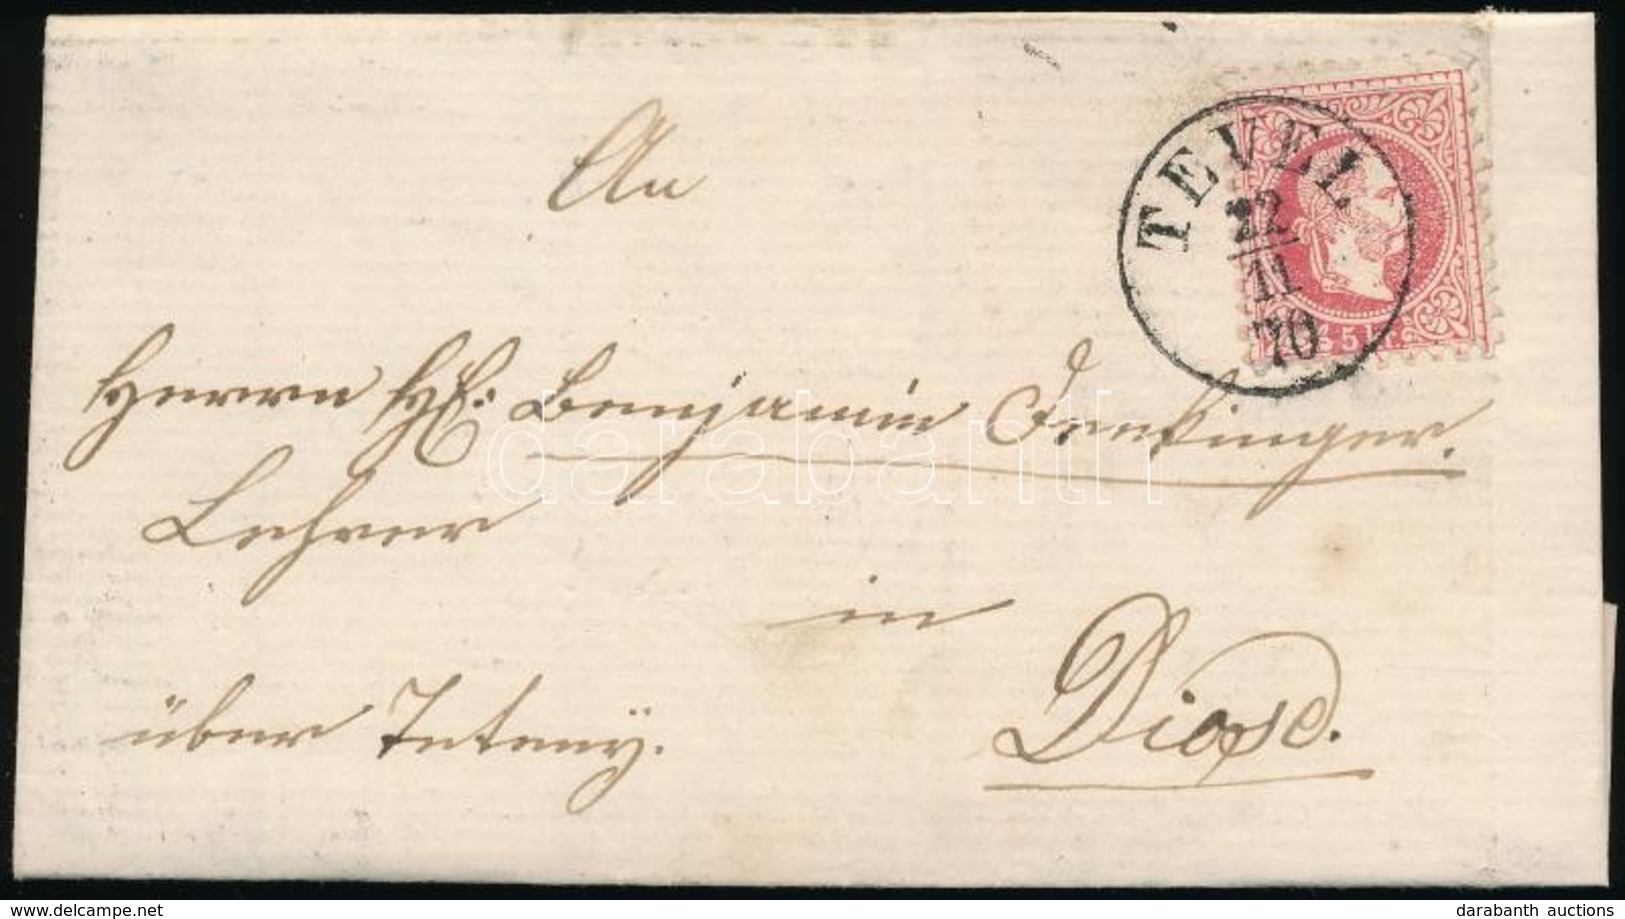 TEVEL
22
11
70
5 kr.
An
Herrn H. Benjamin
Lehrer
in
Diosd.
über Teteny.
darabanth
www.delcampe.net
darabanth auctions